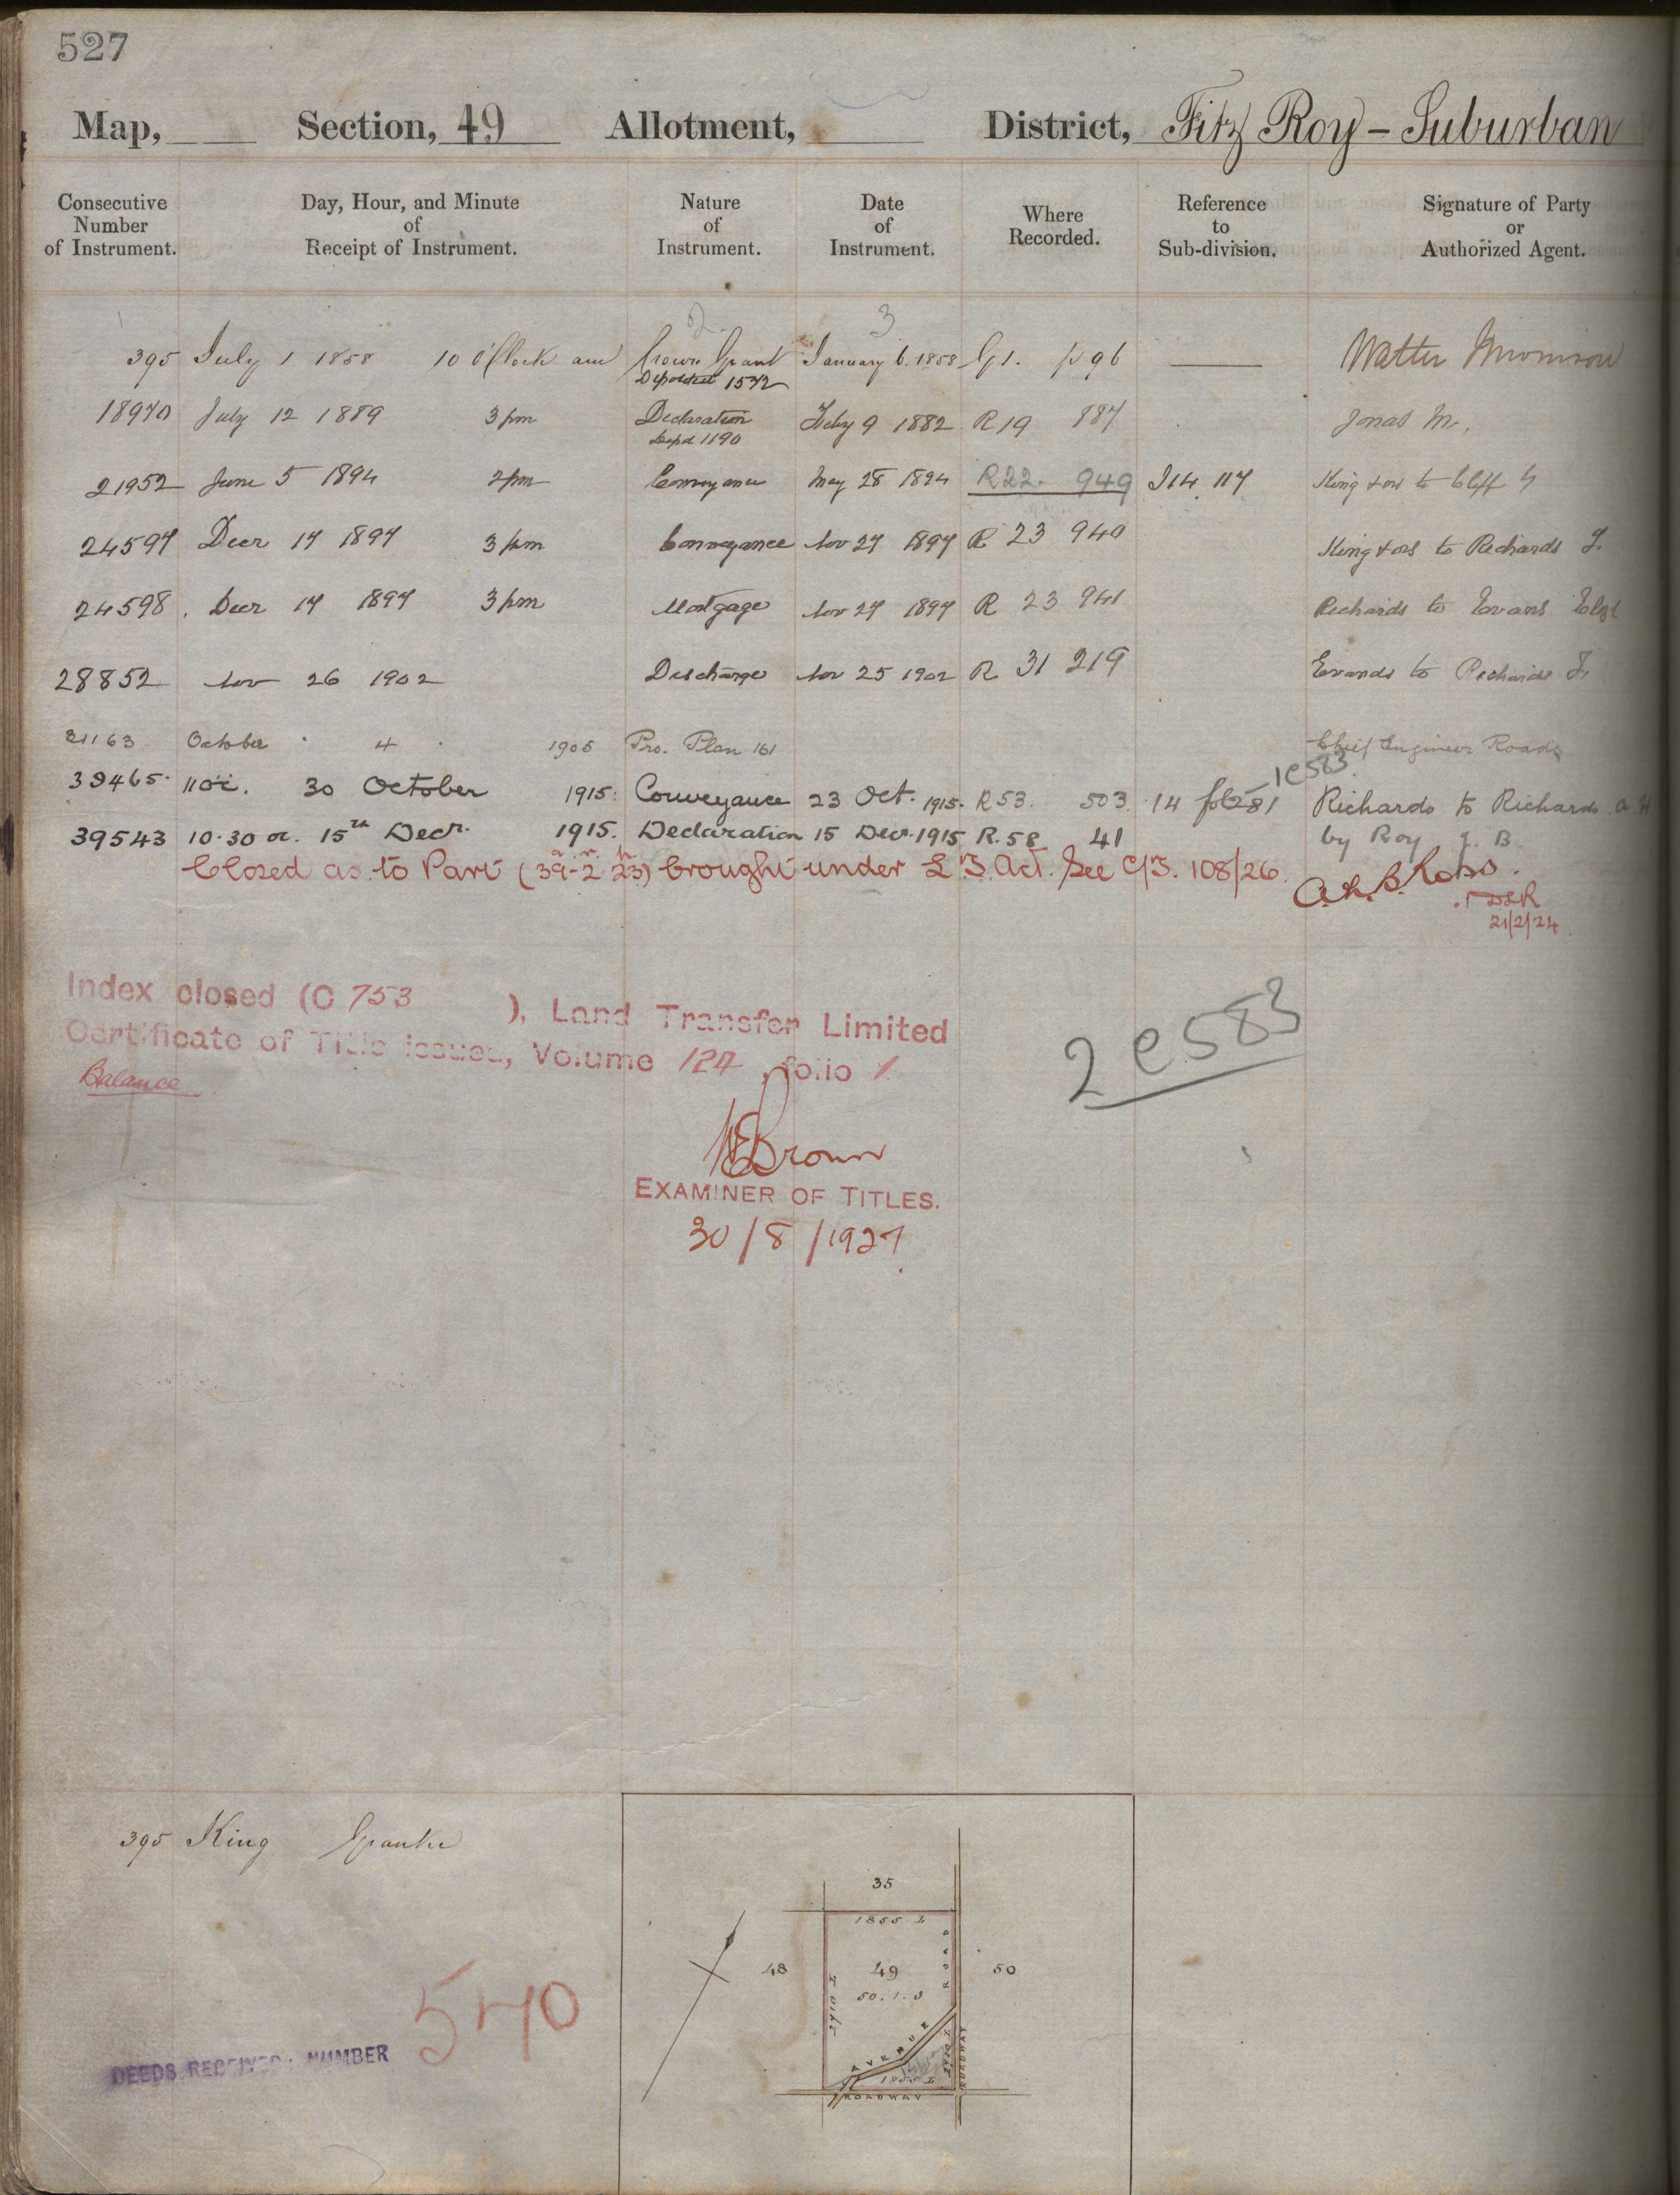 527
Map, Section, 49 Allotment, District, Fitz Roy - Suburban
Consecutive Number of Instrument. Day, Hour, and Minute of Receipt of Instrument. Nature of Instrument. Date of Instrument. Where Recorded. Reference to Sub-division. Signature of Party or Authorized Agent.
2 3
395 July 1 1858 10 O'Clock am Crown Grant January 6. 1858 G1. p 96 Walter Morrison
Deposited 1572
18970 July 12 1889 3 pm Declaration Feby 9 1882 R19 887 Jonas M.
Depd 1190
21952 June 5 1894 2pm Conveyance May 28 1894 R22. 949 I14 117 King & ors to Cliff
24597 Decr 17 1897 3 pm Conveyance Nov 27 1897 R 23 940 King & ors to Richards J.
24598. Decr 17 1897 3 pm Mortgage Nov 27 1897 R 23 941 Richards to Evans
28852 Nov 26 1902 Discharge Nov 25 1902 R 31 219 Evans to Richards J.
31163 October 4 1905 Pro. Plan 161 Chief Engineer Roads
1C583
39465. 30 October 1915. Conveyance 23 Oct. 1915. R53. 503 14 fol 281 Richards to Richards
39543 10.30 a. 15th Decr. 1915. Declaration 15 Decr. 1915 R.58 41 by Roy J. B.
a. r. p.
Closed as to Part (39-2-23) brought under L.T. Act. See C/T. 108/26.
DLR
21/2/24
Index closed (C 753 ), Land Transfer Limited
Certificate of Title issued, Volume 124, folio 1
Balance
2 C 583
Brown
EXAMINER OF TITLES.
30/8/1927
395 King Grantee
35
1855 L
ROAD
48 49 50
50.1.3
2710 L
AVENUE
2710 L
ROADWAY
1855 L
ROADWAY
570
DEEDS RECEIVED: NUMBER